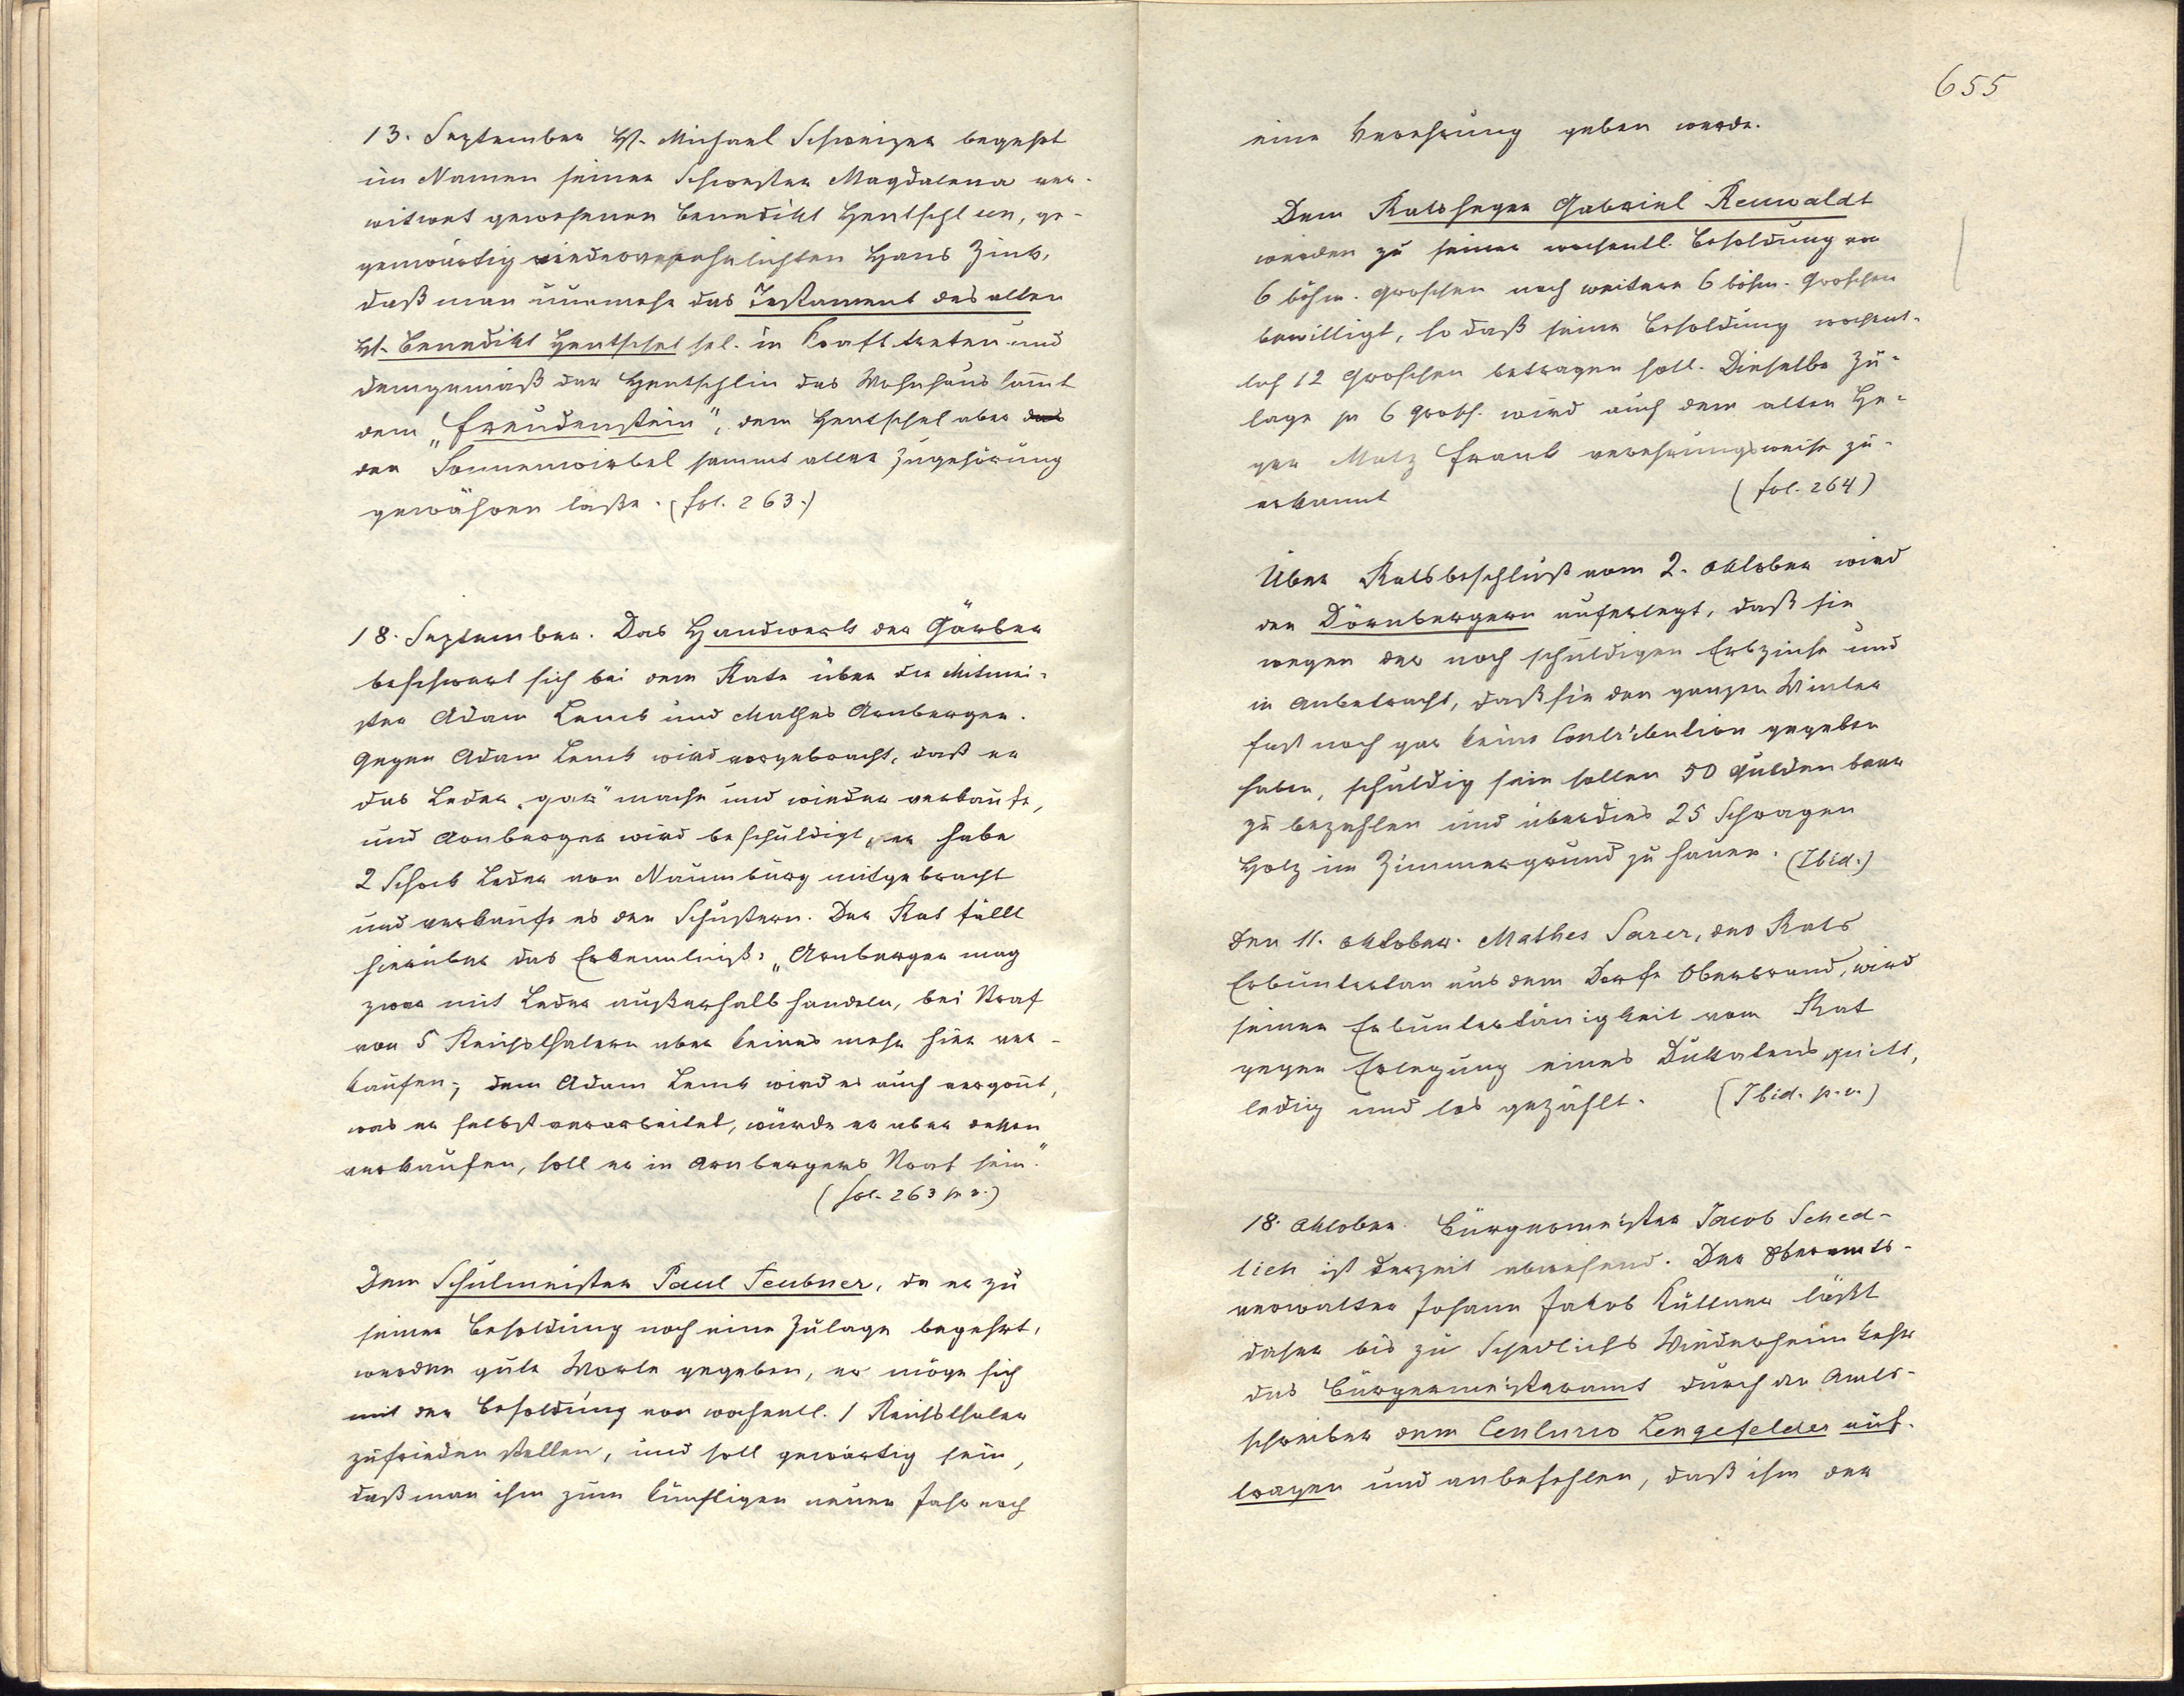 13. September H. Michael Schweizer begehrt
im Namen seiner Schwester Magdalena ver-
witwet gewesenen Benedikt Hentschlin, ge-
genwärtig wiederverehelichten Hans Zink,
daß man nunmehr das Testament des alten
H. Benedikt Hentschel sel. in Kraft treten und
demgemäß der Hentschlin das Wohnhaus sammt
dem „Freudenstein", dem Hentschel aber das
den Sonnenwirbel sammt aller Zugehörung
gewähren laße. (fol. 263.)
18. September. Das Handwerk der Gärber
beschwert sich bei dem Rate über die Mitmei-
ster Adam Lenck und Mathes Arnberger.
Gegen Adam Lenck wird vorgebracht, daß er
das Leder „gar" mache und wieder verkaufe,
und Arnberger wird beschuldigt, er habe
2 Schock Leder von Naumburg mitgebracht
und verkaufe es den Schustern. Der Rat fällt
hierüber das Erkenntniß: „Arnberger mag
zwar mit Leder außerhalb handeln, bei Straf
von 5 Reichsthalern aber keines mehr hier ver-
kaufen; dem Adam Lenck wird es auch vergönt,
was er selbst verarbeitet, würde er aber
verkaufen, soll er in Arnbergers Straf sein."
(fol. 263 p. v.)
Dem Schulmeister Paul Teubner, da er zu
seiner Besoldung noch eine Zulage begehrt,
werden gute Worte gegeben, er möge sich
mit der Besoldung von wochentl. 1 Reichsthaler
zufrieden stellen, und soll gewärtig sein,
daß man ihm zum künftigen neuen Jahr noch
655
eine Verehrung geben werde.
Dem Ratsheger Gabriel Reuwaldt
werden zu seiner wochentl. Besoldung von
6 böhm. Groschen noch weitere 6 böhm. Groschen
bewilligt, so daß seine Besoldung wochent-
lich 12 Groschen betragen soll. Dieselbe Zu-
lage pr 6 Grosch. wird auch dem alten He-
ger Matz Frank verehrungsweise zu-
erkannt (fol. 264)
Über Ratsbeschluß vom 2. Oktober wird
den Dörnbergern auferlegt, daß sie
wegen der noch schuldigen Erbzinse und
in Anbetracht, daß sie den ganzen Winter
fast noch gar keine Contribution gegeben
haben, schuldig sein sollen 50 Gulden baar
zu bezahlen und überdies 25 Schragen
Holz im Zimmergrund zu hauen. (Ibid.)
Den 11. Oktober. Mathes Sarer, des Rats
Erbuntertan aus dem Dorfe Oberbrand, wird
seiner Erbuntertänigkeit vom Rat
gegen Erlegung eines Dukatens quitt,
ledig und los gezählt. (Ibid. p. v.)
18. Oktober. Bürgermeister Jacob Sched-
lich ist derzeit abwesend. Der Oberamts-
verwalter Johann Jakob Küttner läßt
daher bis zu Schedlichs Wiederheimkehr
das Bürgermeisteramt durch den Amts-
schreiber dem Centurio Lengefelder auf-
tragen und anbefehlen, daß ihm der